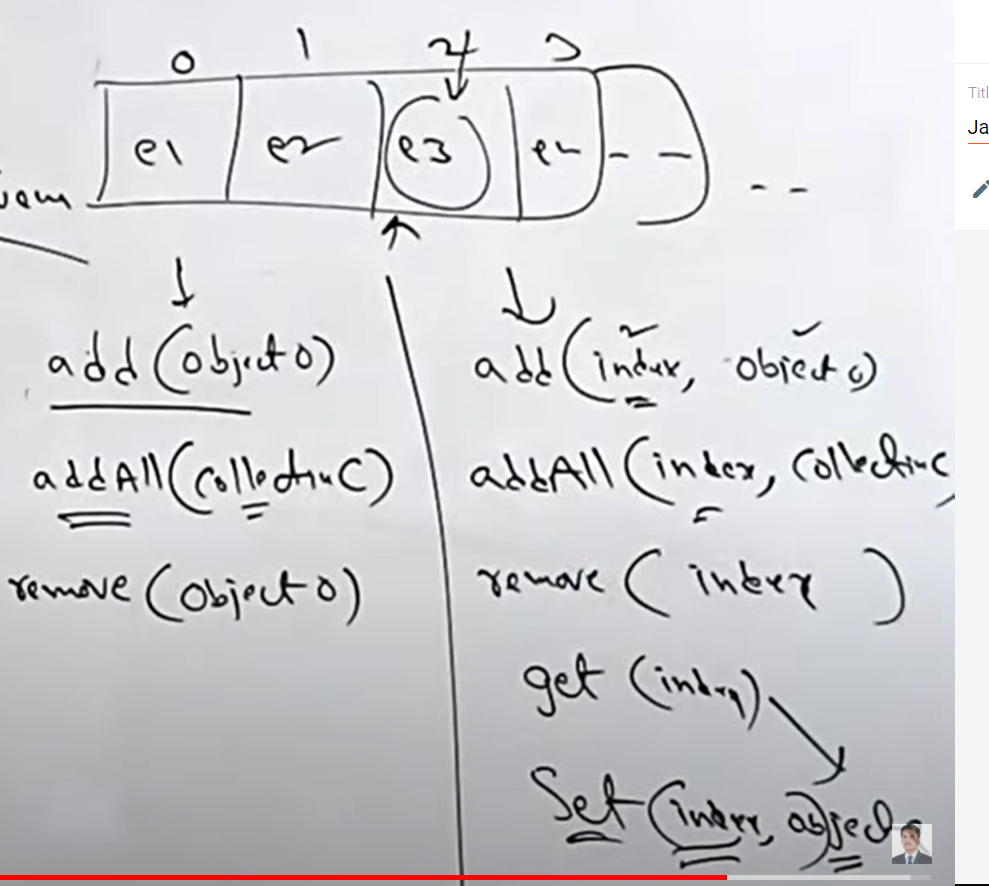 0 1 2 3
Titl
e1 e2 e3 e4 - - - -
Ja
add(Object O)
add(index, Object o)
addAll(Collection C)
addAll(index, Collection C
remove(Object O)
remove( index )
get (index)
Set (index, object